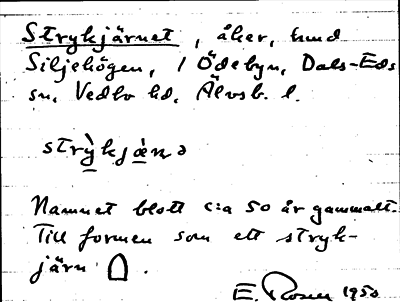 Strykjärnet, åker, hmd
Siljehögen, / Ödebyn, Dals-Eds
sn, Vedbo hd, Älvsb. l.
strỳkjæ̀nə
Namnet blott c:a 50 år gammalt.
Till formen som ett stryk-
järn.
E. Rosen 1950